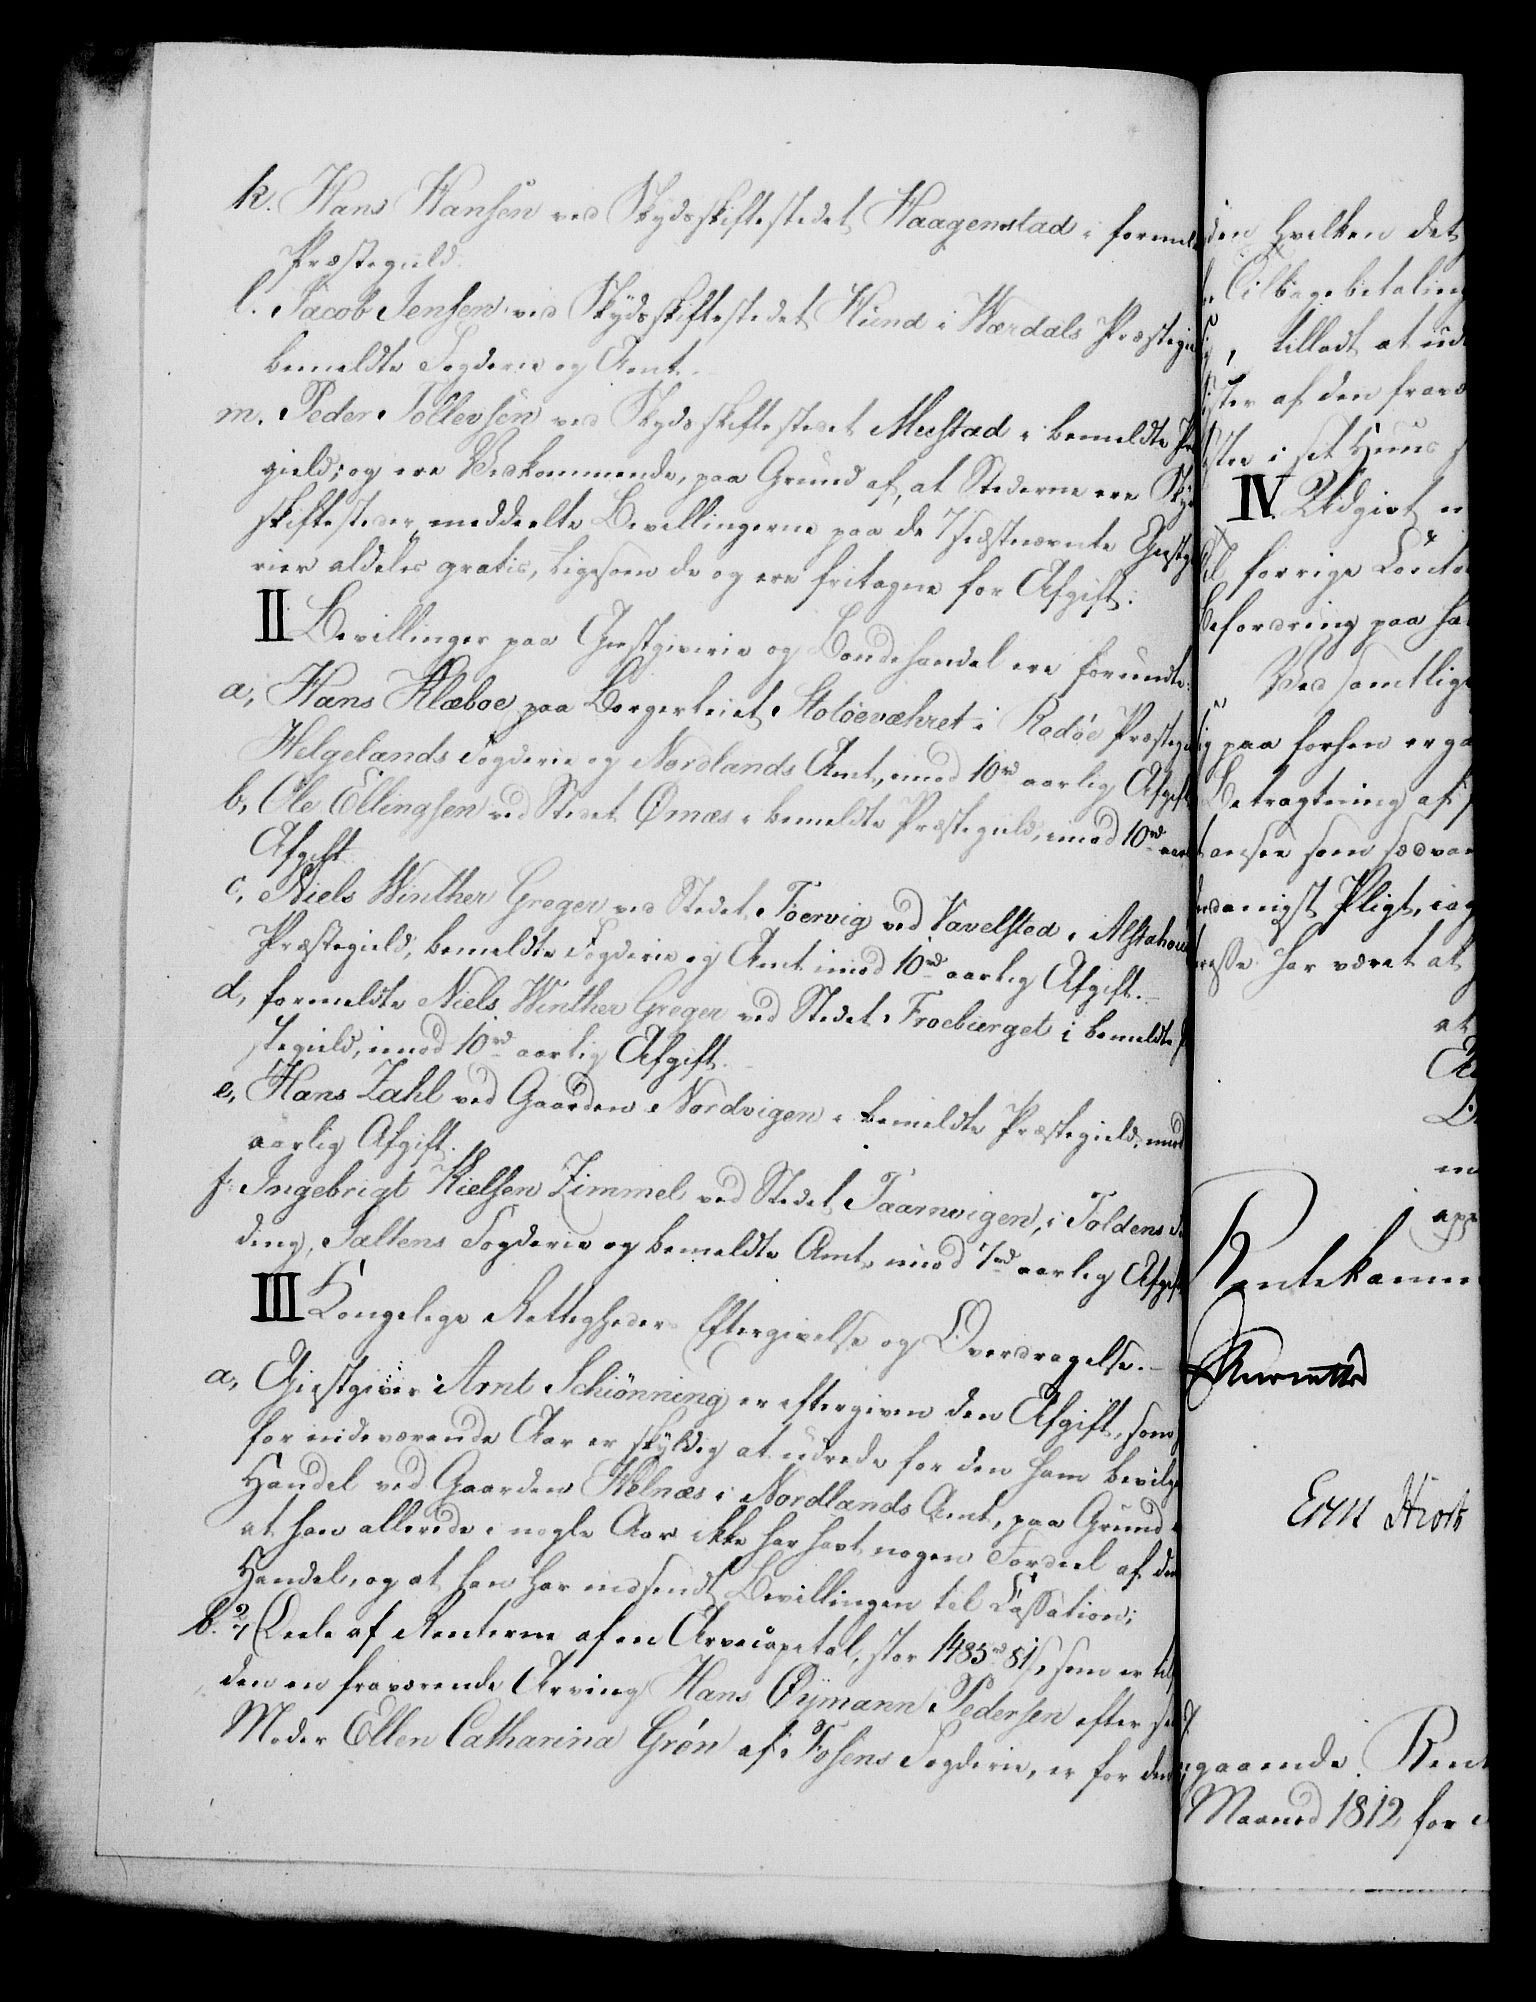 k. Hans Hansen ved Skydsskiftestedet Haagenstad i formeld
Præstegield.
l. Jacob Jensen ved Skydsskiftestedet Hund i Wærdals Præstegi
bemeldte Fogderie og Amt.
m. Peder Tollevsen ved Skydsskiftestedet Mustad i bemeldte Præ
gield; og ere Vedkommende, paa Grund af, at Stederne ere Skyds
skiftesteder, meddeelte Bevillingerne paa de 7 sidstnævnte Giestgi
rier aldeles gratis, ligesom de og ere fritagne for Afgift.
II Bevillinger paa Giestgiverie og Bondehandel ere forundte:
a, Hans Klæboe paa Borgerleiet Stotøeværhret i Rodøe Præstegi
Helgelands Fogderie og Nordlands Amt, imod 10 rd aarlig Afgift
b, Ole Ellingsen ved Stedet Ørnæs i bemeldte Præstegield, imod 10 rd aar
Afgift.
c, Niels Winther Greger ved Stedet Toervig ved Vavelsted i Alstahoug
Præstegield, bemeldte Fogderie og Amt imod 10 rd aarlig Afgift.
d, formeldte Niels Winther Greger ved Stedet Froeburget i bemeldte P
stegield, imod 10 rd aarlig Afgift.
e, Hans Zahl ved Gaarden Nordvigen i bemeldte Præstegield, imod
aarlig Afgift.
f. Ingebrigt Nielsen Zimmel ved Stedet Taarnvigen, i Foldens
ding, Saltens Fogderie og bemeldte Amt, imod 7 rd aarlig Afgift
III Kongelige Rettigheders Eftergivelse og Overdragelse.
a, Giestgiver Arnt Schiønning er eftergiven den Afgift, som
for indeværende Aar er skyldig at udrede for den ham bevilg
Handel ved Gaarden Helnæs i Nordlands Amt, paa Grund a
at han allerede i nogle Aar ikke har havt nogen Fordeel af den
Handel, og at han har indsendt Bevillingen til Cassation;
b. 2/ Deele af Renterne af en Arvecapital, stor 1485 rd 81 s, som er til
den en fraværende Arving Hans Øymann Pedersen efter si
Moder Ellen Catharina Grøn af Fosens Fogderie, er for den
den hvilken det
Tilbagebetaling
, tilladt at ud
ster af den fravæ
stre i sit Huus
IV. Udgivt er
forrige
Befordring paa ha
Ved samtlige
paa forhen erga
Betragtning af
ansee som sædvan
danigst Pligt, iag
resse har været at
at
Rentekamm
Ernst Hiort
gaaende. Rent
Maaned 1812 for